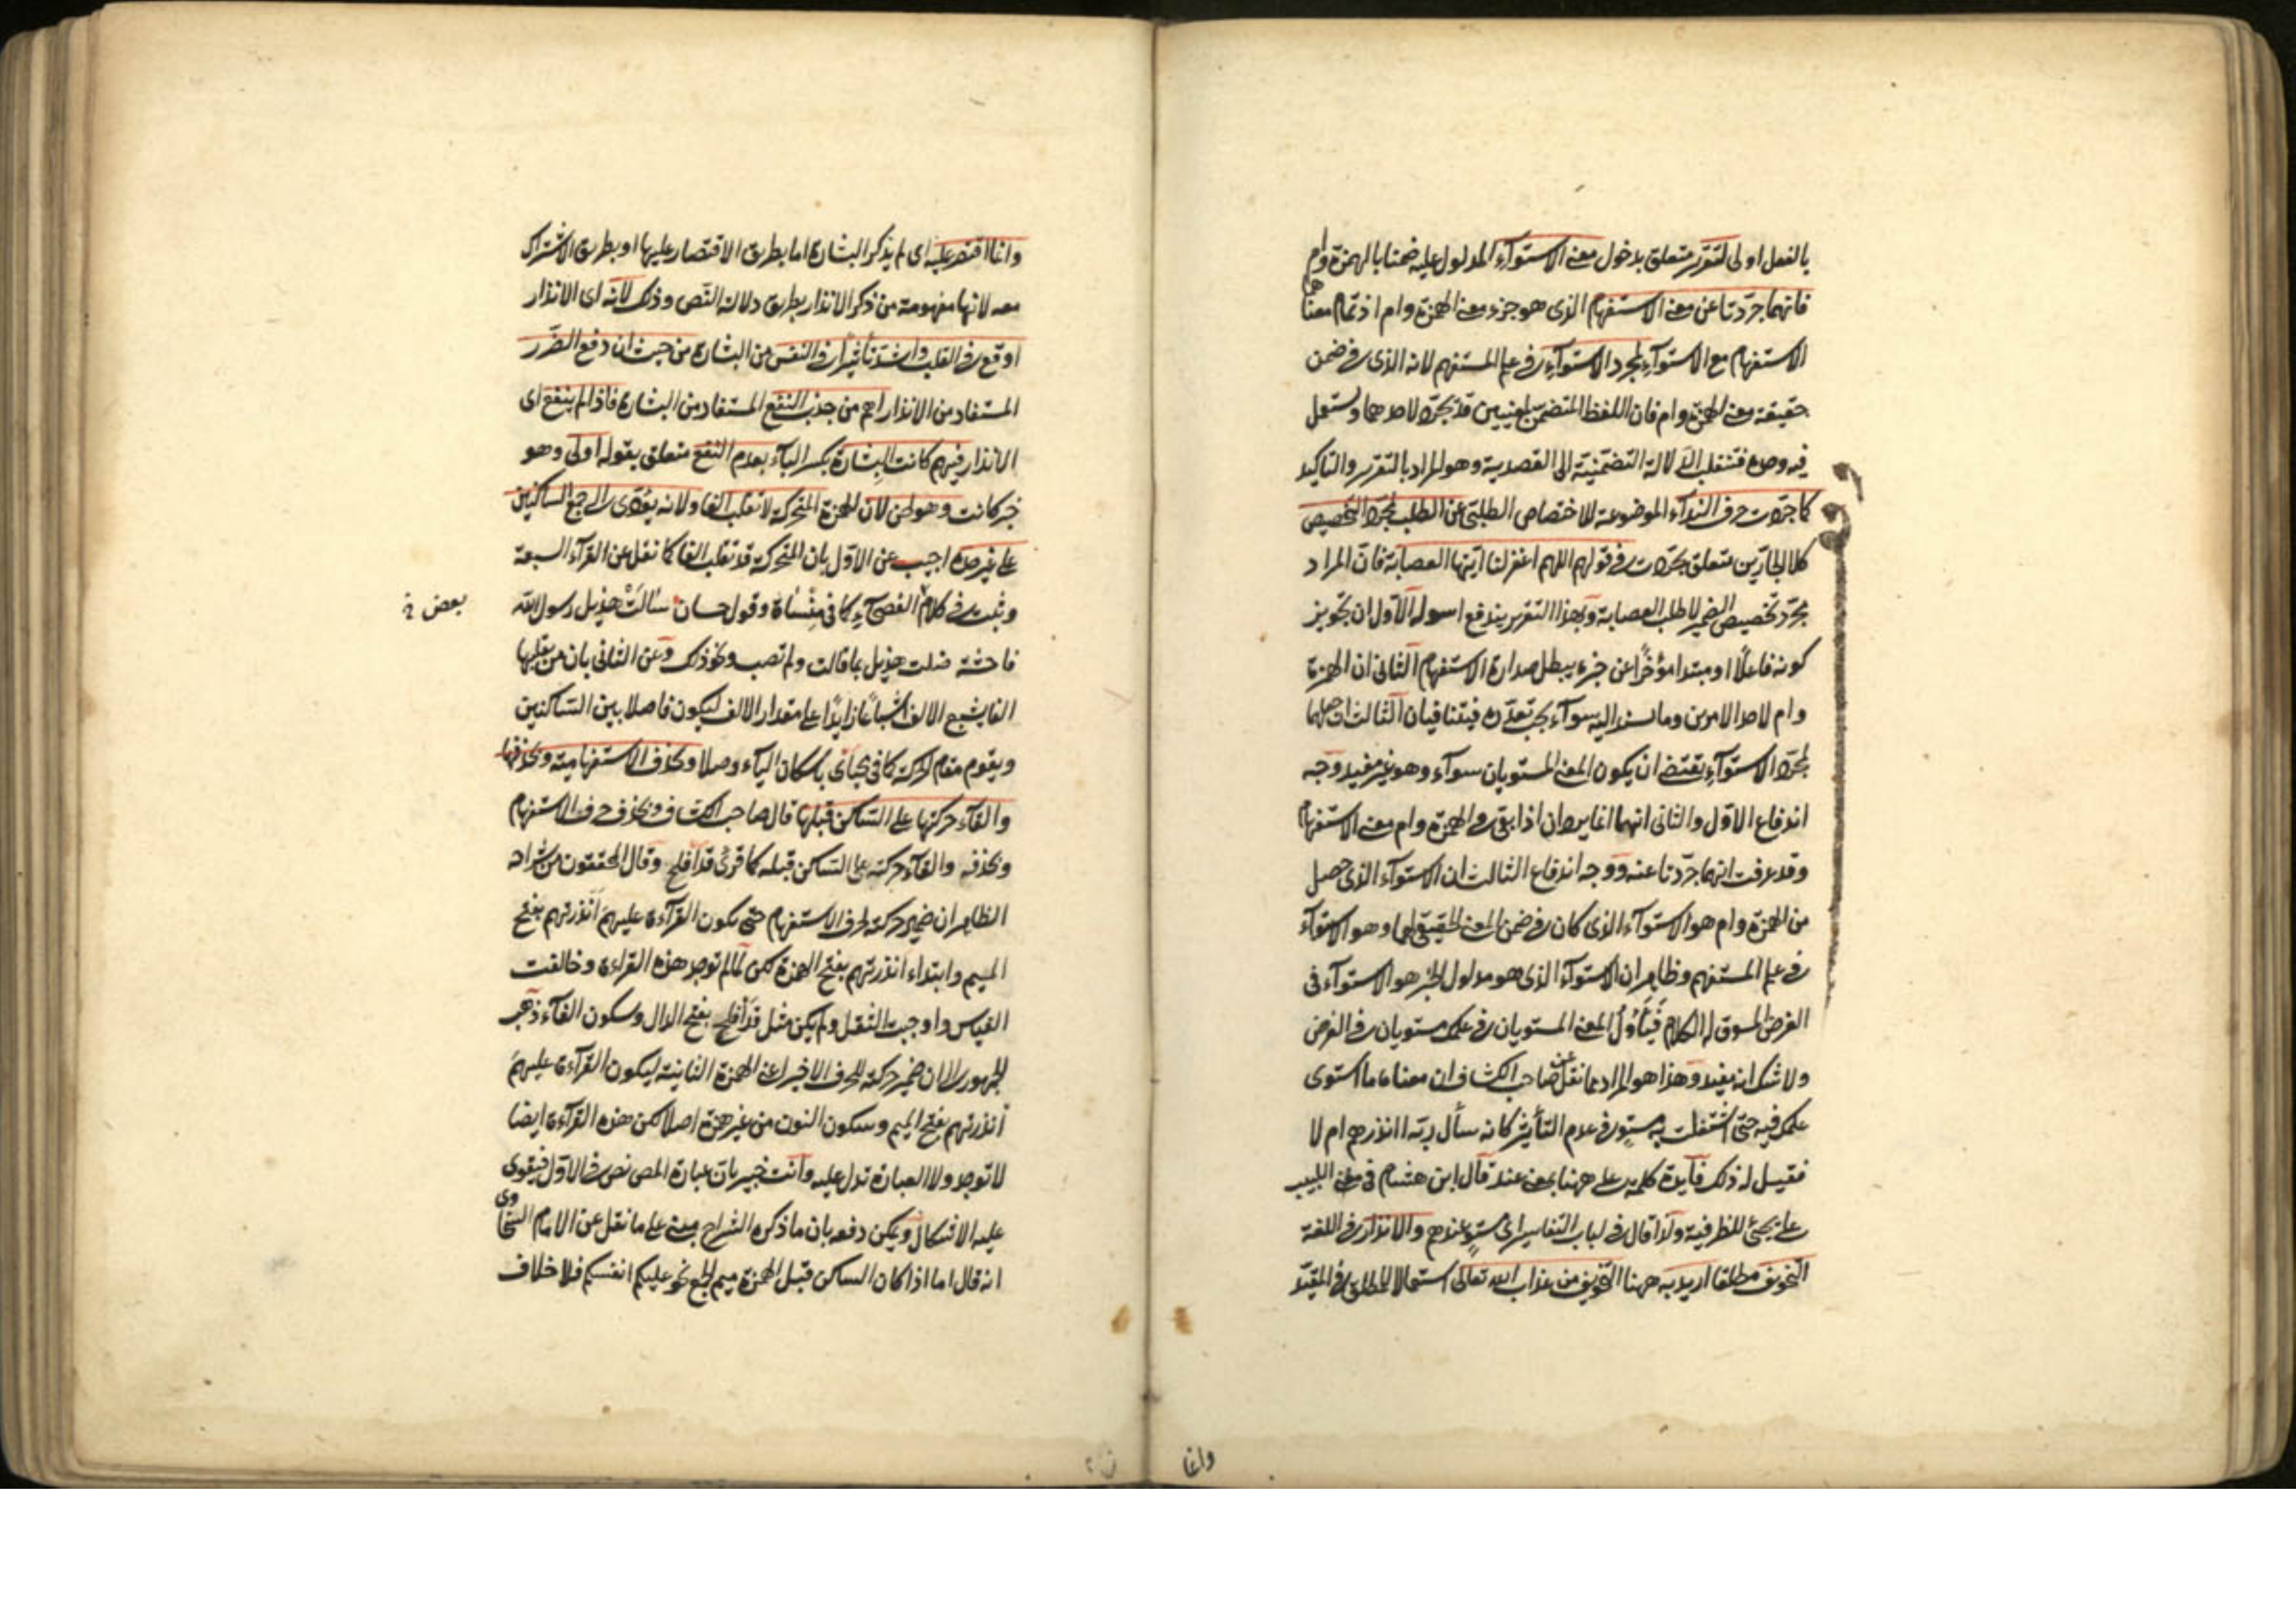 بالفعل اولى لتقرر متعلق بدخول معنى الاستوآء المدلول عليه ضمنا بالهمزة وام
فانهما جرّدتا عن معنى الاستفهام الذى هو جزء معنى الهمزة وام اذ تمام معناهما
الاستفهام مع الاستوآء لمجرد الاستوآء فى علم المستفهم لانه الذى فى ضمن
حقيقة معنى الهمزة وام فان اللفظ المتضمّن لمعنيين قد يجرّد لاحدهما ويستعمل
فيه وحده فتنقلب الدّلالة التضمّنيّة الى القصدية وهو المراد بالتقرير والتاكيد
كما جرّدت حرف الندآء الموضوعة للاختصاص الطلبّى عن الطلب لمجرّد التخصيص
كلا الجارّين متعلق بجرّدت فى قولهم اللهم اغفر لنا ايّتها العصابة فانّ المراد
مجرّد تخصيص الضمير لا طلب العصابة وبهذا التقرير يندفع اسولة الاوّل ان تجويز
كونه فاعلًا او مبتدا مؤخّرًا عن جزء يبطل صدارة الاستفهام الثانى ان الهمزة
وام لاحد الامرين وما يسند اليه سوآء يجب تعدّده فيتنافيان الثالث انّ حملهما
لمجرّد الاستوآء يقتضى ان يكون المعنى المستويان سوآء وهو غير مفيد وجه
اندفاع الاوّل والثانى انهما انما يردان اذا بقى فى الهمزة وام معنى الاستفهام
وقد عرفت انهما جرّدتا عنه ووجه اندفاع الثالث ان الاستوآء الذى حصل
من الهمزة وام هو الاستوآء الذى كان فى ضمن المعنى الحقيقى لهما وهو الاستوآء
فى علم المستفهم وظاهر ان الاستوآء الذى هو مدلول الخبر هو الاستوآء فى
الغرض المسوق له الكلام فيَأُوّلُ المعنى المستويان فى علمك مستويان فى الغرض
ولا شك انه مفيد وهذا هو المراد مما نقل عن صاحب الكشاف ان معناه ما استوى
علمك فيه حتى اشتغلت به مستوٍ فى عدم التأثير كانه سأل ربّه اانذرهم ام لا
فقيل له ذلك فآيدة كلمة على ههنا بمعنى عند قال ابن هشام فى مغنى اللبيب
على يجئ للظرفية ولذا قال فى لباب التفاسير اى مستوٍ عندهم والانذار فى اللغة
التخويف مطلقا اريد به ههنا التخويف من عذاب الله تعالى استعمالا للمطلق فى المقيّد
وانما
وانما اقتصر عليه اى لم يذكر البشارة اما بطريق الاقتصار عليها او بطريق الاشتراك
معه لانها مفهومة من ذكر الانذار بطريق دلالة النّص وذلك لانه اى الانذار
اوقع فى القلب واشدّ تأثيرًا فى النفس من البشارة من حيث ان دفع الضّرر
المستفاد من الانذار اهم من جذب النفع المستفاد من البشارة فاذا لم ينفع اى
الانذار فيهم كانت البِشارة بكسر البآء بعدم النفع متعلق بقوله اولى وهو
خبر كانت وهو لحن لان الهمزة المتحركة لا تقلب الفا ولانه يؤدّى الى جمع الساكنين
على غير حدّه اجيب عن الاوّل بان المتحركة قد تقلب الفا كما نقل عن القرآء السبعة
وثبت فى كلام الفصحآء كما فى مِنْسَاة وقول حسان سَالَتْ هذيل رسول الله
بعض
فاحشة ضلت هذيل بما قالت ولم تصب ونحو ذلك وعن الثانى بان من يقلبها
الفا يشبع الالف اشباعًا زايدًا على مقدار الالف ليكون فاصلا بين السّاكنين
ويقوم مقام الحركة كما فى محياى باسكان اليآء وصلا وبحذف الاستفهامية وبحذفها
والقآء حركتها على السّاكن قبلها قال صاحب الكشاف وبحذف حرف الاستفهام
وبحذفه والقآء حركته على السّاكن قبله كما قرئ قدَ افلح وقال المحققون من شراحه
الظاهر ان ضمير حركته لحرف الاستفهام حتى يكون القرآءة عليهمَ اَنذرتهم بفتح
الميم وابتداء انذرتهم بفتح الهمزة لكن لمّا لم توجد هذه القراءة وخالفت
القياس واوجبت الثقل ولم يكن مثل قدَ افلح بفتح الدال وسكون الفآء ذهب
الجمهور الى ان ضمير حركته للحرف الاخير اعنى الهمزة الثانية ليكون القرآءة عليهمَ
نذرتهم بفتح الميم وسكون النون من غير همزة اصلا لكن هذه القرآءة ايضا
لا توجد ولا العبارة تدل عليه وانت خبير بانّ عبارة المص نص فى الاوّل فيقوى
عليه الاشكال ويمكن دفعه بان ما ذكره الشراح مبنى على ما نقل عن الامام السخاوى
انه قال اما اذا كان الساكن قبل الهمزة ميم الجمع نحو عليكم انفسكم فلا خلاف